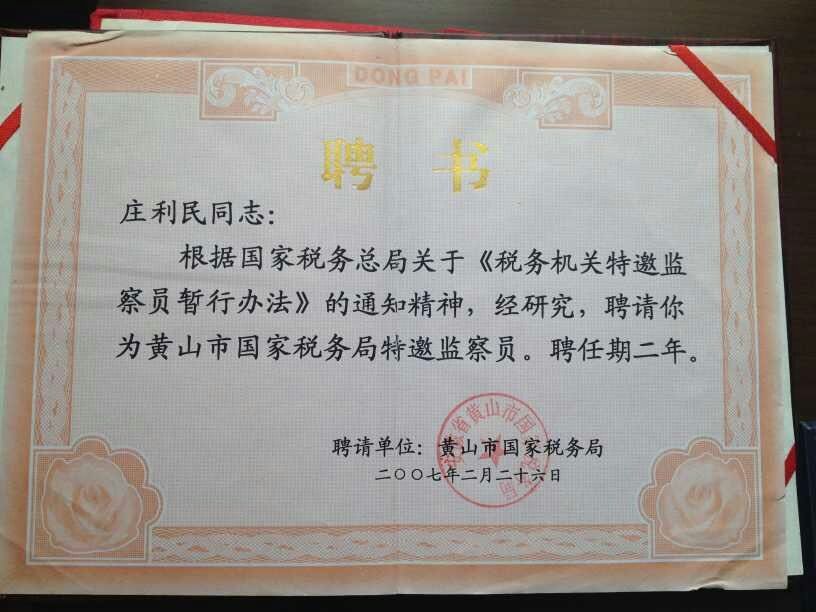 DONG PAI
聘书
庄利民同志：
根据国家税务总局关于《税务机关特邀监
察员暂行办法》的通知精神，经研究，聘请你
为黄山市国家税务局特邀监察员。聘任期二年。
聘请单位：黄山市国家税务局
二〇〇七年二月二十六日
省黄山市国